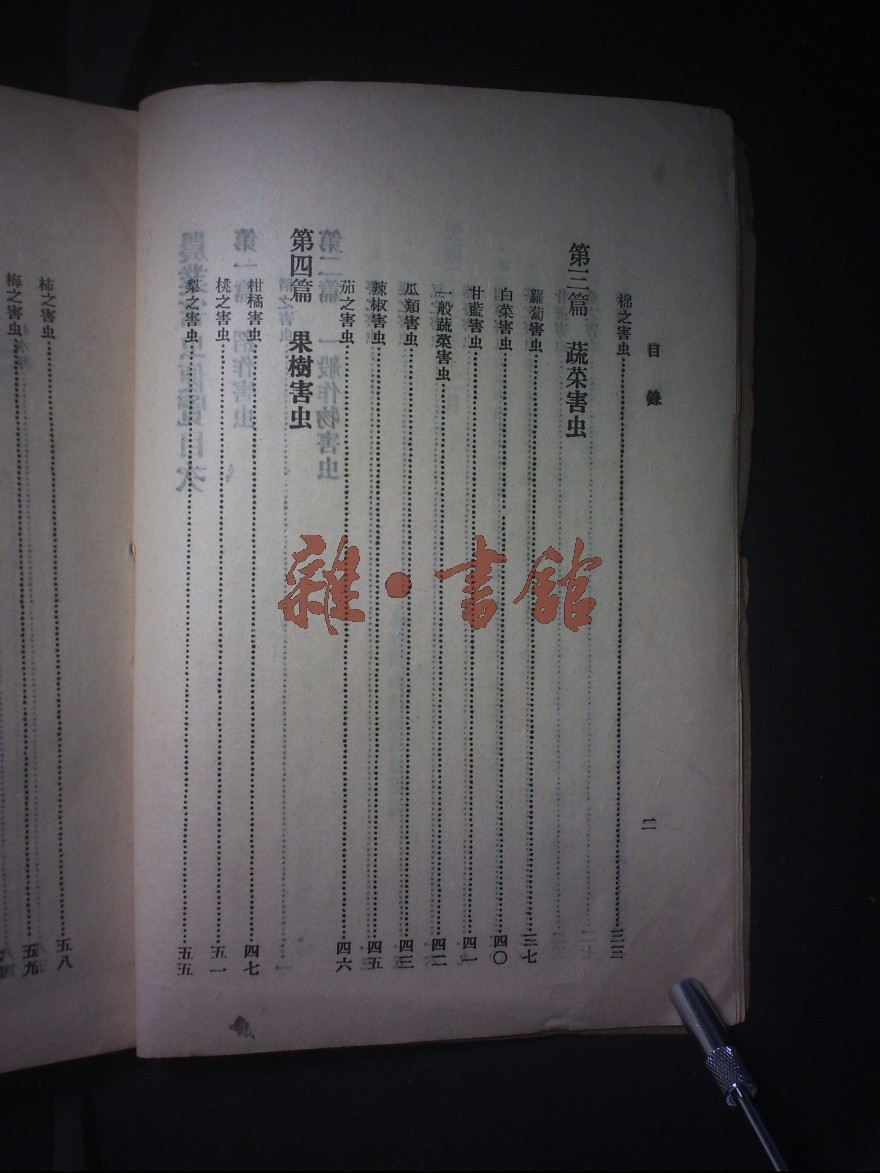 目錄
二
棉之害虫……三三
第三篇 蔬菜害虫
蘿蔔害虫……三七
白菜害虫……四〇
甘藍害虫……四一
一般蔬菜害虫……四二
瓜類害虫……四三
辣椒害虫……四五
茄之害虫……四六
第四篇 果樹害虫
柑橘害虫……四七
桃之害虫……五一
梨之害虫……五五
柿之害虫……五八
梅之害虫……五九
雜·書館